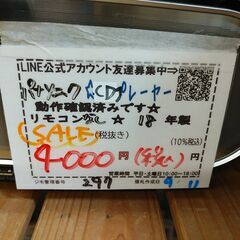 LINE公式アカウント友達募集中⇒
パナソニック ☆CDプレーヤー
動作確認済みです☆
リモコン無し ☆ 18年製
SALE (税抜き) (10%税込)
4000円
営業時間 平日・土曜日10:00~18:00
ジモ管理番号 297 値札作成日 9/11